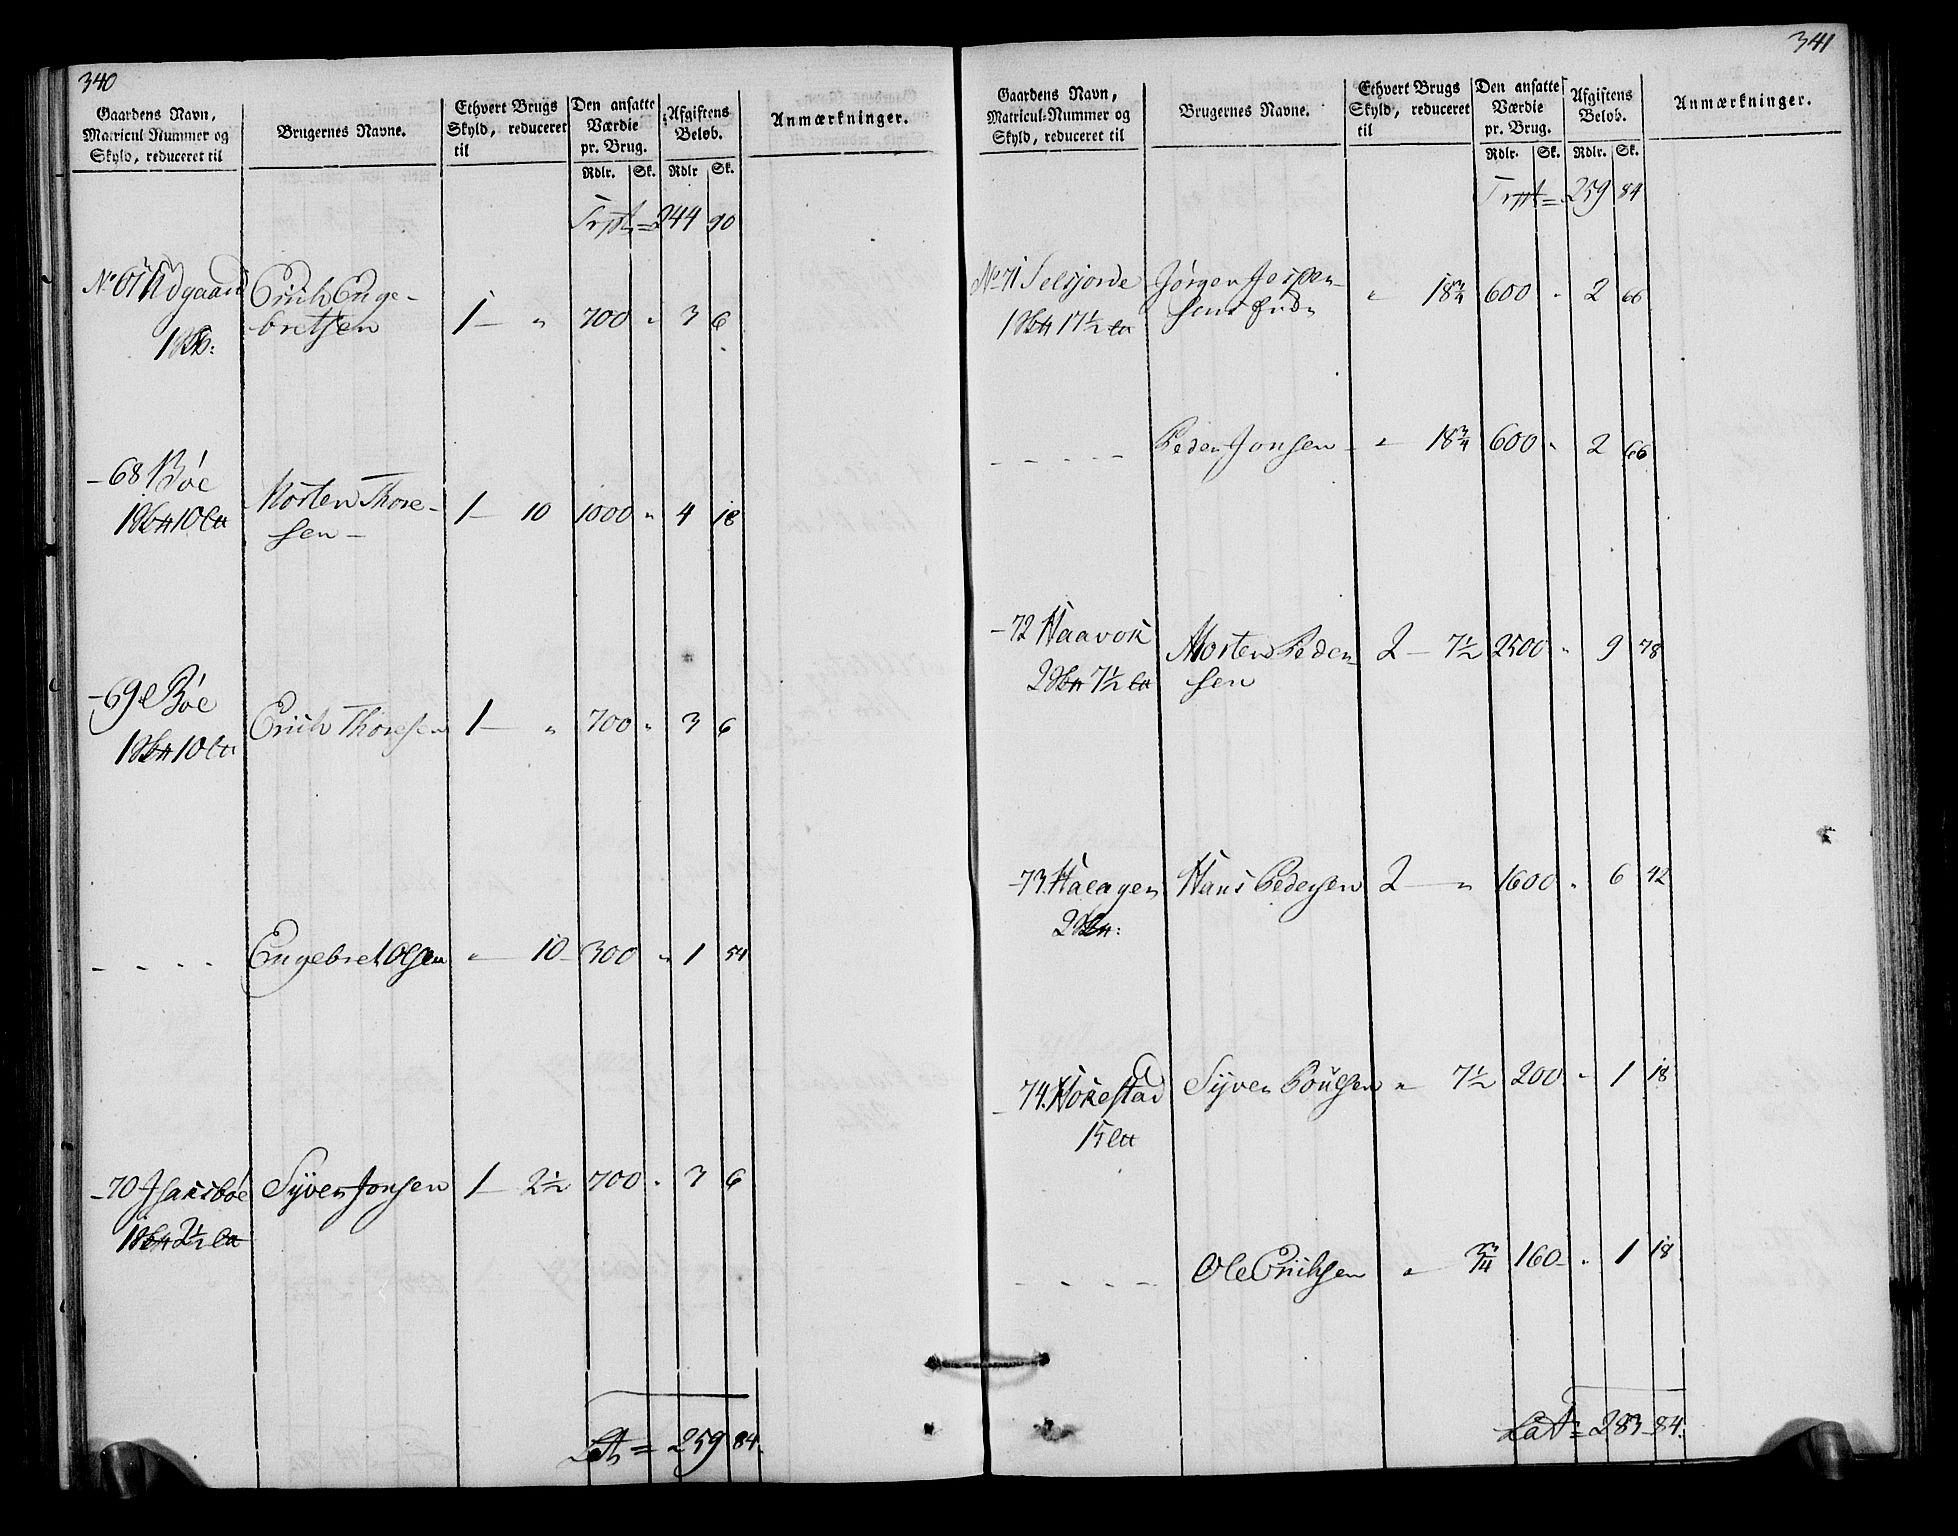 340
Gaardens Navn,
Matricul-Nummer og
Skyld, reduceret til
Brugernes Navne.
Ethvert Brugs
Skyld, reduceret
til
Den ansatte
Værdie
pr. Brug.
Afgiftens
Beløb.
Anmærkninger.
Rdlr. Sk. Rdlr Sk.
244 90
No 67 Udgaard Erich Enge-
bretsen 1 — " 700 " 3 6
1
- 68 Bøe Morten Thore-
sen - 1 — 10 1000 " 4 18
1 10
- 69 Bøe Erich Thoresen 1 — " 700 " 3 6
1 10
- - - - Engebret Olsen " 10 300 " 1 54
- 70 Isaksbøe Syver Jonsen 1 — 2½ 700 " 3 6
1 2½
Lat = 259 84.
341
Gaardens Navn,
Matricul-Nummer og
Skyld, reduceret til
Brugernes Navne.
Ethvert Brugs
Skyld, reduceret
til
Den ansatte
Værdie
pr. Brug.
Afgiftens
Beløb.
Anmærkninger.
Rdlr. Sk. Rdlr. Sk.
259 84
No 71 Selsjorde Jørgen Jespen-
sens " 18¾ 600 " 2 66
1 17½
- - - - - Peder Jonsen - " 18¾ 600 " 2 66
- 72 Haavok Morten Peder
sen 2 — 7½ 2500 " 9 78
2 7½
- 73. Hans Pedersen 2 — " 1600 " 6 42
2
- 74. Hokestad Syver Poulsen " 7½ 200 " 1 18
15
- - - - - Ole Erichsen " 160 " 1 18
Lat = 283 84.